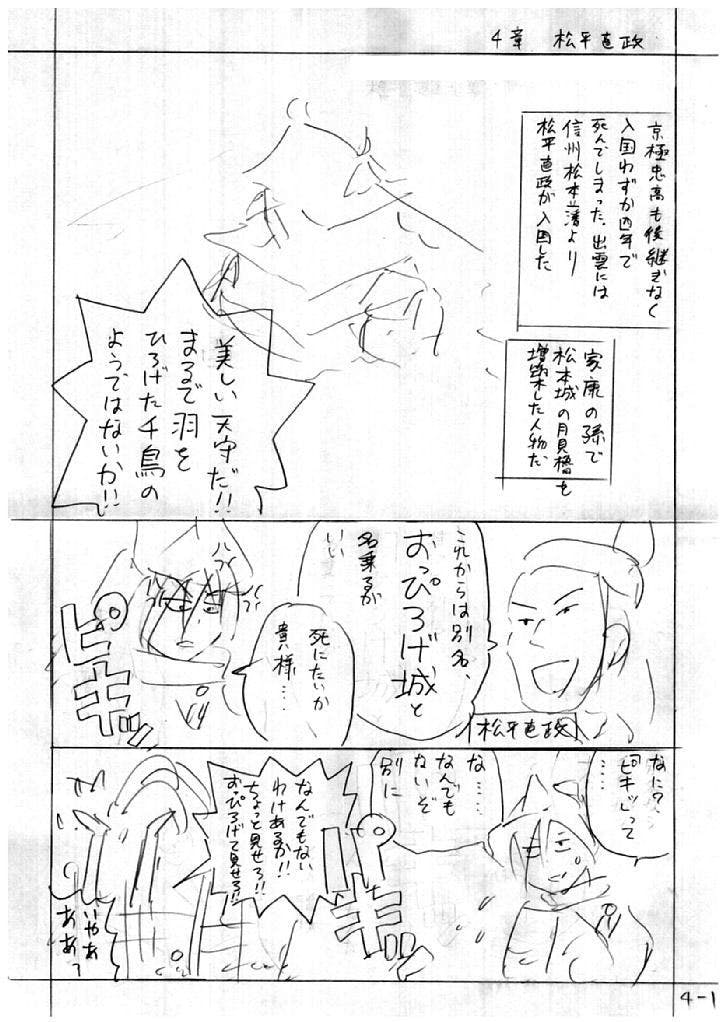 4章 松平直政
京極忠高も後継ぎなく
入国わずか四年で
死んでしまった。出雲には
信州松本藩より
松平直政が入国した
家康の孫で
松本城の月見櫓を
増築した人物だ
美しい天守だ!!
まるで羽を
ひろげた千鳥の
ようではないか!!
これからは別名、
おっぴろげ城と
名乗るが
いい
松平直政
死にたいか
貴様……
ピキッ
なに?…
"ピキッ"って
……
な……
なんでも
ないぞ
別に
ピキッ
なんでもない
わけあるか!!
ちょっと見せろ!!
おっぴろげて見せろ!!
いやあ
ああっ
4-1